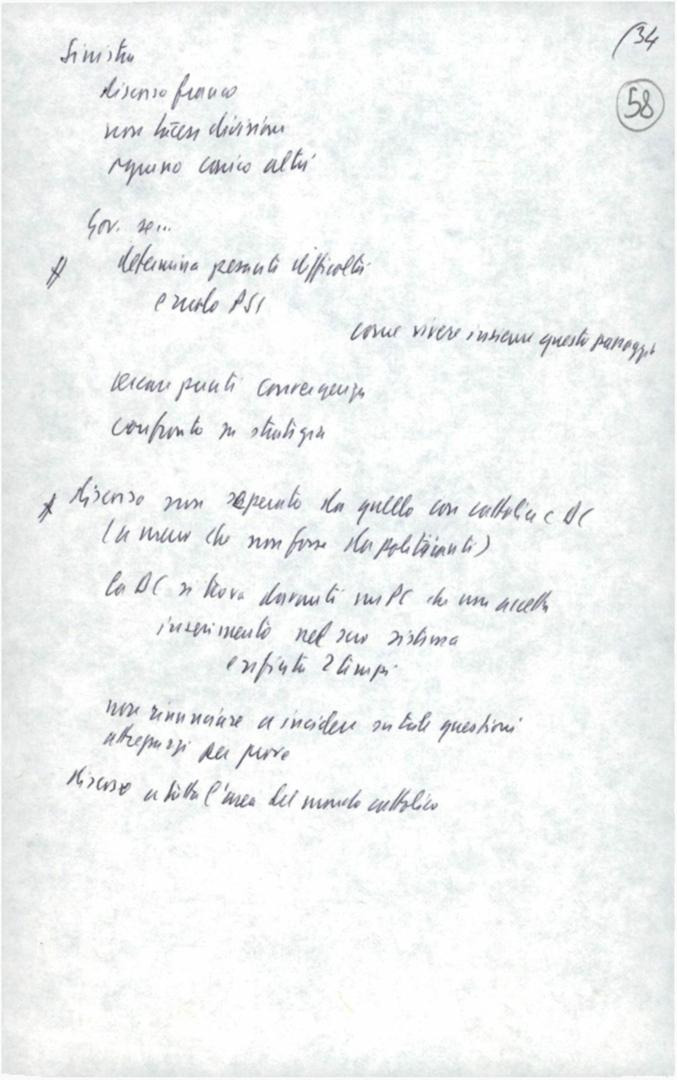 (34
58
Sinistra
discorso franco
non divisioni
ognuno carico altri
Gov. se...
determina pesanti difficoltà
e ruolo PSI
come vivere insieme questo passaggio
cercare punti convergenza
confronto su strategia
discorso non separato da quello con cattolici e DC
(a meno che non fosse da politicanti)
la DC si trova davanti un PC che non accetta
inserimento nel suo sistema
e rifiuta 2 tempi
non rinunciare a incidere su tali questioni
per prove
discorso a tutta l'area del mondo cattolico